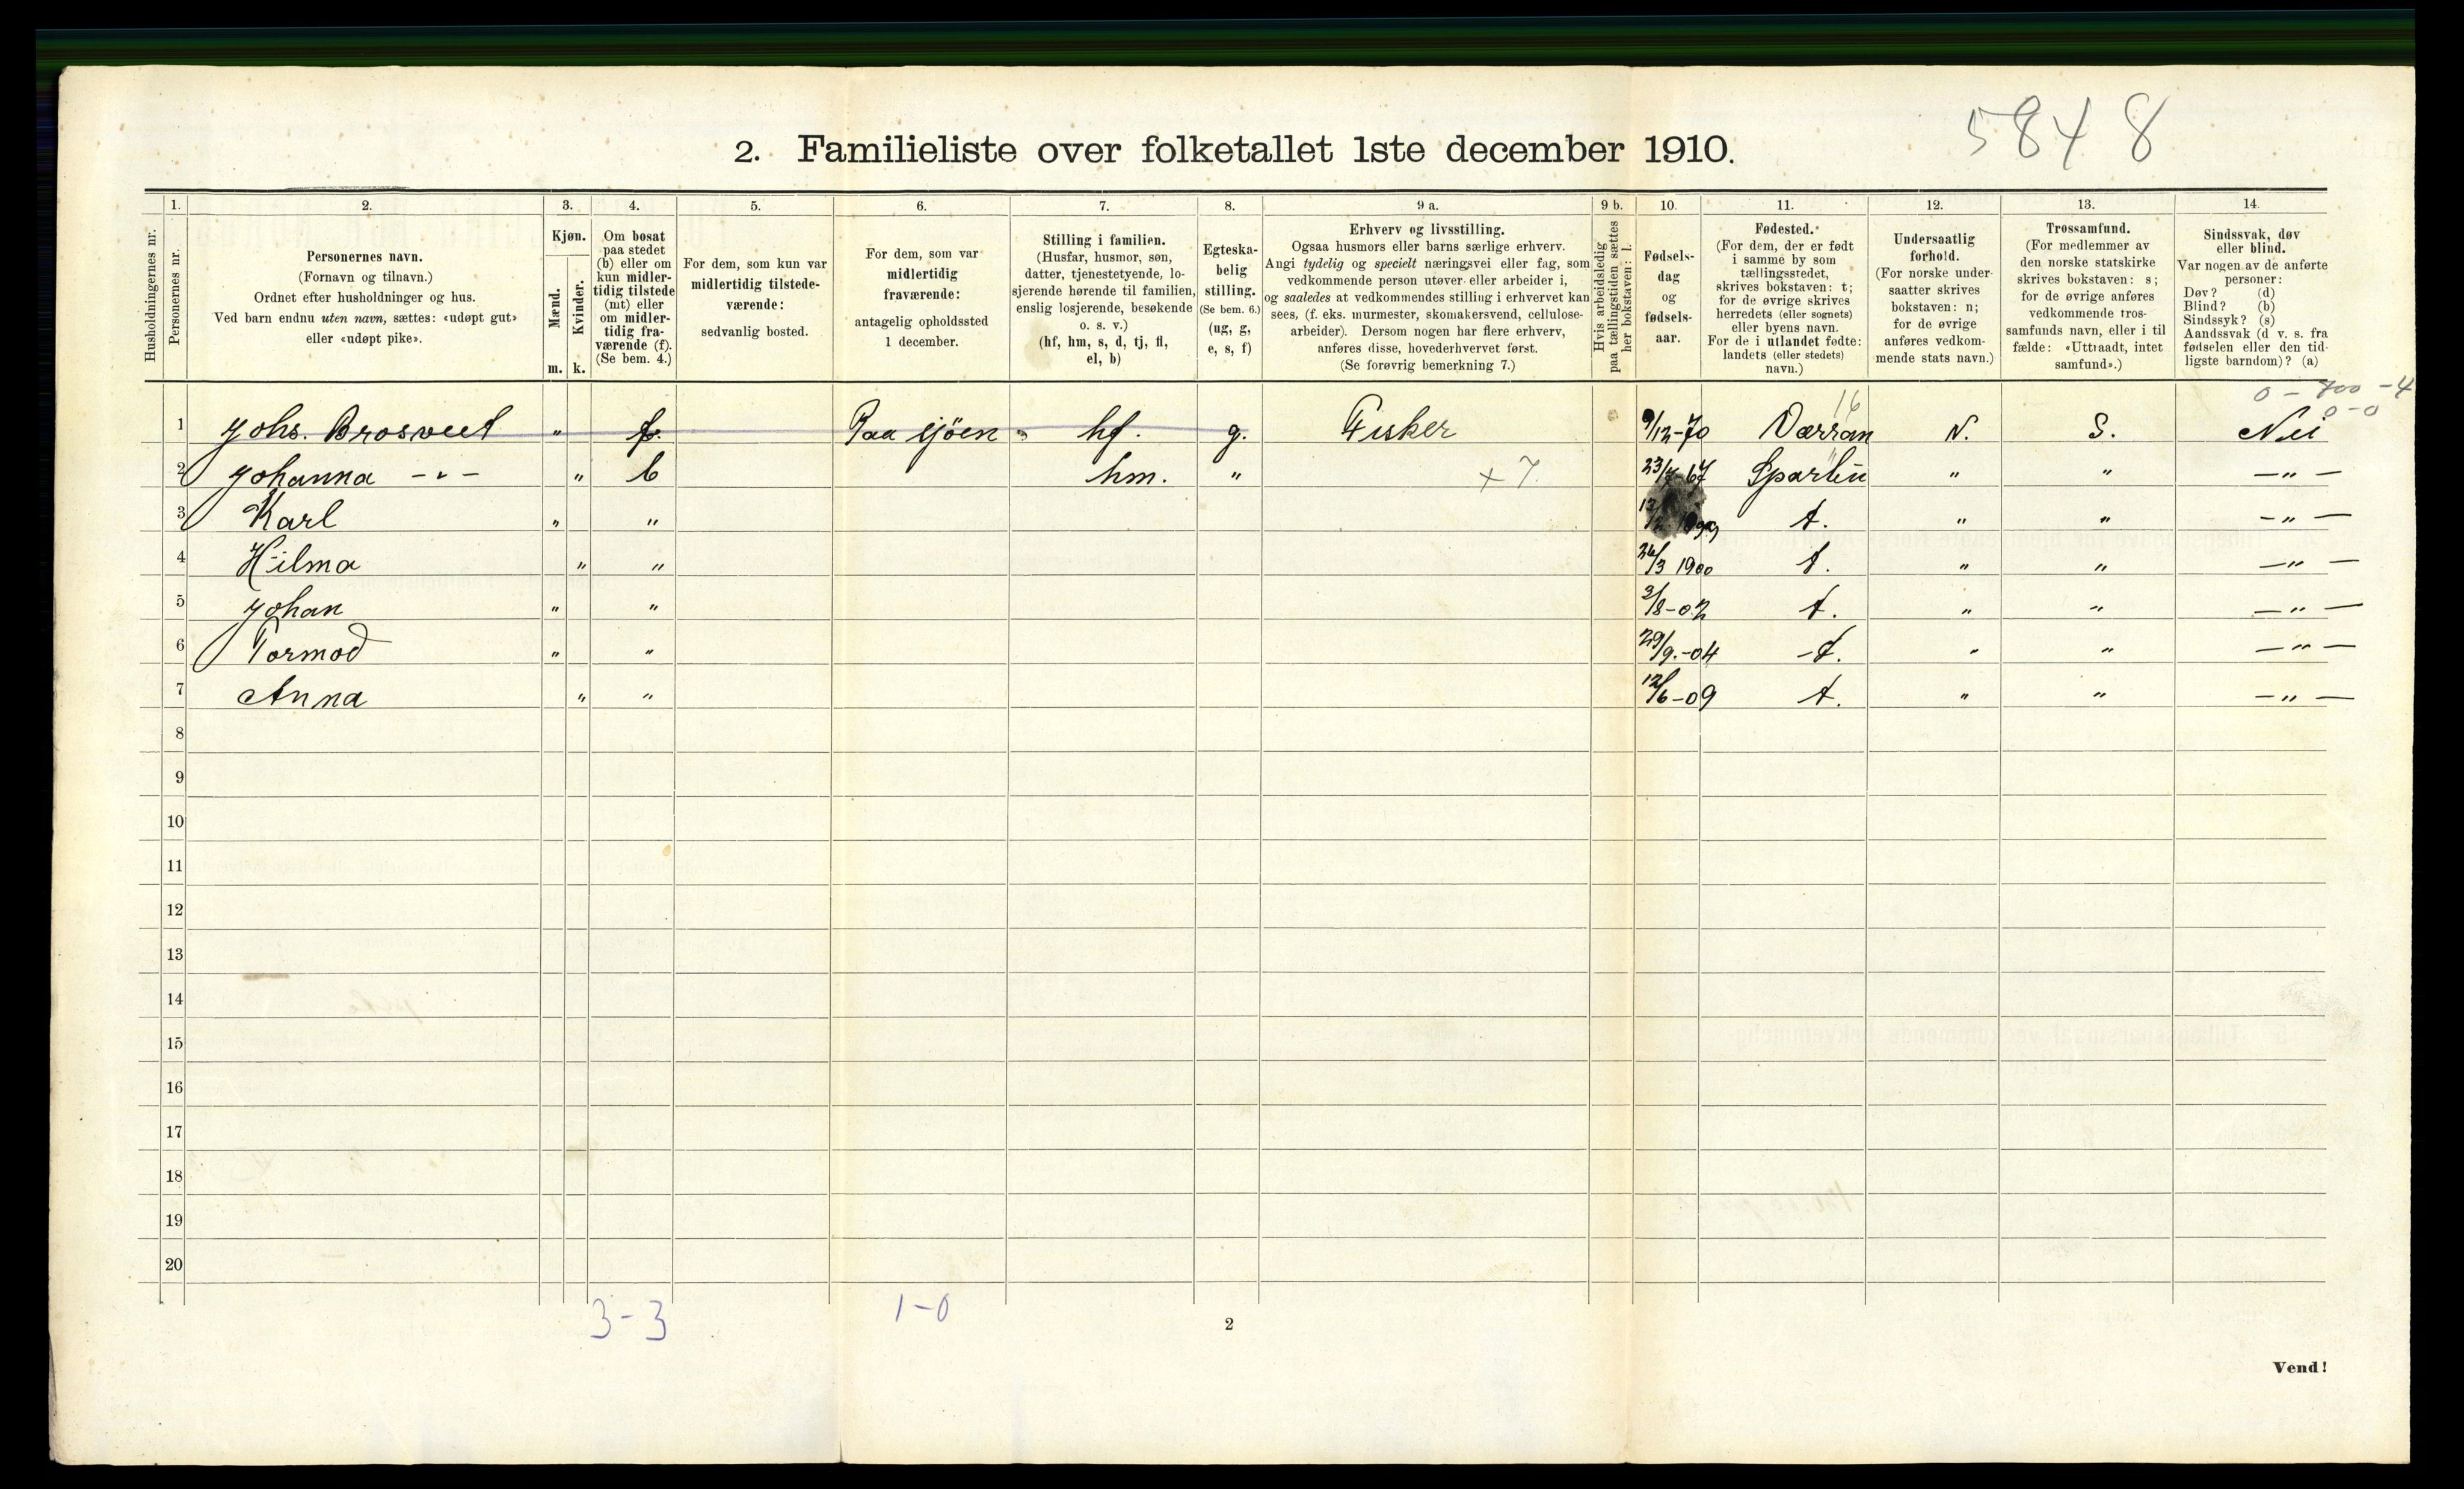 5848
2. Familieliste over folketallet 1ste december 1910.
1. 2. 3. 4. 5. 6. 7. 8. 9 a. 9 b. 10. 11. 12. 13. 14.
Husholdningernes nr.
Personernes nr.
Personernes navn.
(Fornavn og tilnavn.)
Ordnet efter husholdninger og hus.
Ved barn endnu uten navn, sættes: «udøpt gut»
eller «udøpt pike».
Kjøn.
Mænd.
Kvinder.
m. k.
Om bosat
paa stedet
(b) eller om
kun midler-
tidig tilstede
(mt) eller
om midler-
tidig fra-
værende (f).
(Se bem. 4.)
For dem, som kun var
midlertidig tilstede-
værende:
sedvanlig bosted.
For dem, som var
midlertidig
fraværende:
antagelig opholdssted
1 december.
Stilling i familien.
(Husfar, husmor, søn,
datter, tjenestetyende, lo-
sjerende hørende til familien,
enslig losjerende, besøkende
o. s. v.)
(hf, hm, s, d, tj, fl,
el, b)
Egteska-
belig
stilling.
(Se bem. 6.)
(ug, g,
e, s, f)
Erhverv og livsstilling.
Ogsaa husmors eller barns særlige erhverv.
Angi tydelig og specielt næringsvei eller fag, som
vedkommende person utøver eller arbeider i,
og saaledes at vedkommendes stilling i erhvervet kan
sees, (f. eks. murmester, skomakersvend, cellulose-
arbeider). Dersom nogen har flere erhverv,
anføres disse, hovederhvervet først.
(Se forøvrig bemerkning 7.)
Hvis arbeidsledig
paa tællingstiden sættes
her bokstaven: l.
Fødsels-
dag
og
fødsels-
aar.
Fødested.
(For dem, der er født
i samme by som
tællingsstedet,
skrives bokstaven: t;
for de øvrige skrives
herredets (eller sognets)
eller byens navn.
For de i utlandet fødte:
landets (eller stedets)
navn.)
Undersaatlig
forhold.
(For norske under-
saatter skrives
bokstaven: n;
for de øvrige
anføres vedkom-
mende stats navn.)
Trossamfund.
(For medlemmer av
den norske statskirke
skrives bokstaven: s;
for de øvrige anføres
vedkommende tros-
samfunds navn, eller i til
fælde: «Uttraadt, intet
samfund».)
Sindssvak, døv
eller blind.
Var nogen av de anførte
personer:
Døv? (d)
Blind? (b)
Sindssyk? (s)
Aandssvak (d v. s. fra
fødselen eller den tid-
ligste barndom)? (a)
16 0 - 700 - 4
0 - 0
1 Johs. Brosveet " f. Paa sjöen hf. g. Fisker 9/12-70 Værran N. S. Nei
2 Johanna -"- " b hm. " + 7. 23/7-67 Sparbu " " -"-
3 Karl " " t. " " -"-
4 Hilma " " 26/3 1900 t. " " -"-
5 Johan " " 3/8-02 t. " " -"-
6 Tormod " " 29/9.-04 t. " " -"-
7 Anna " " 12/6-09 t. " " -"-
8
9
10
11
12
13
14
15
16
17
18
19
20
3-3 1-0
2
Vend!